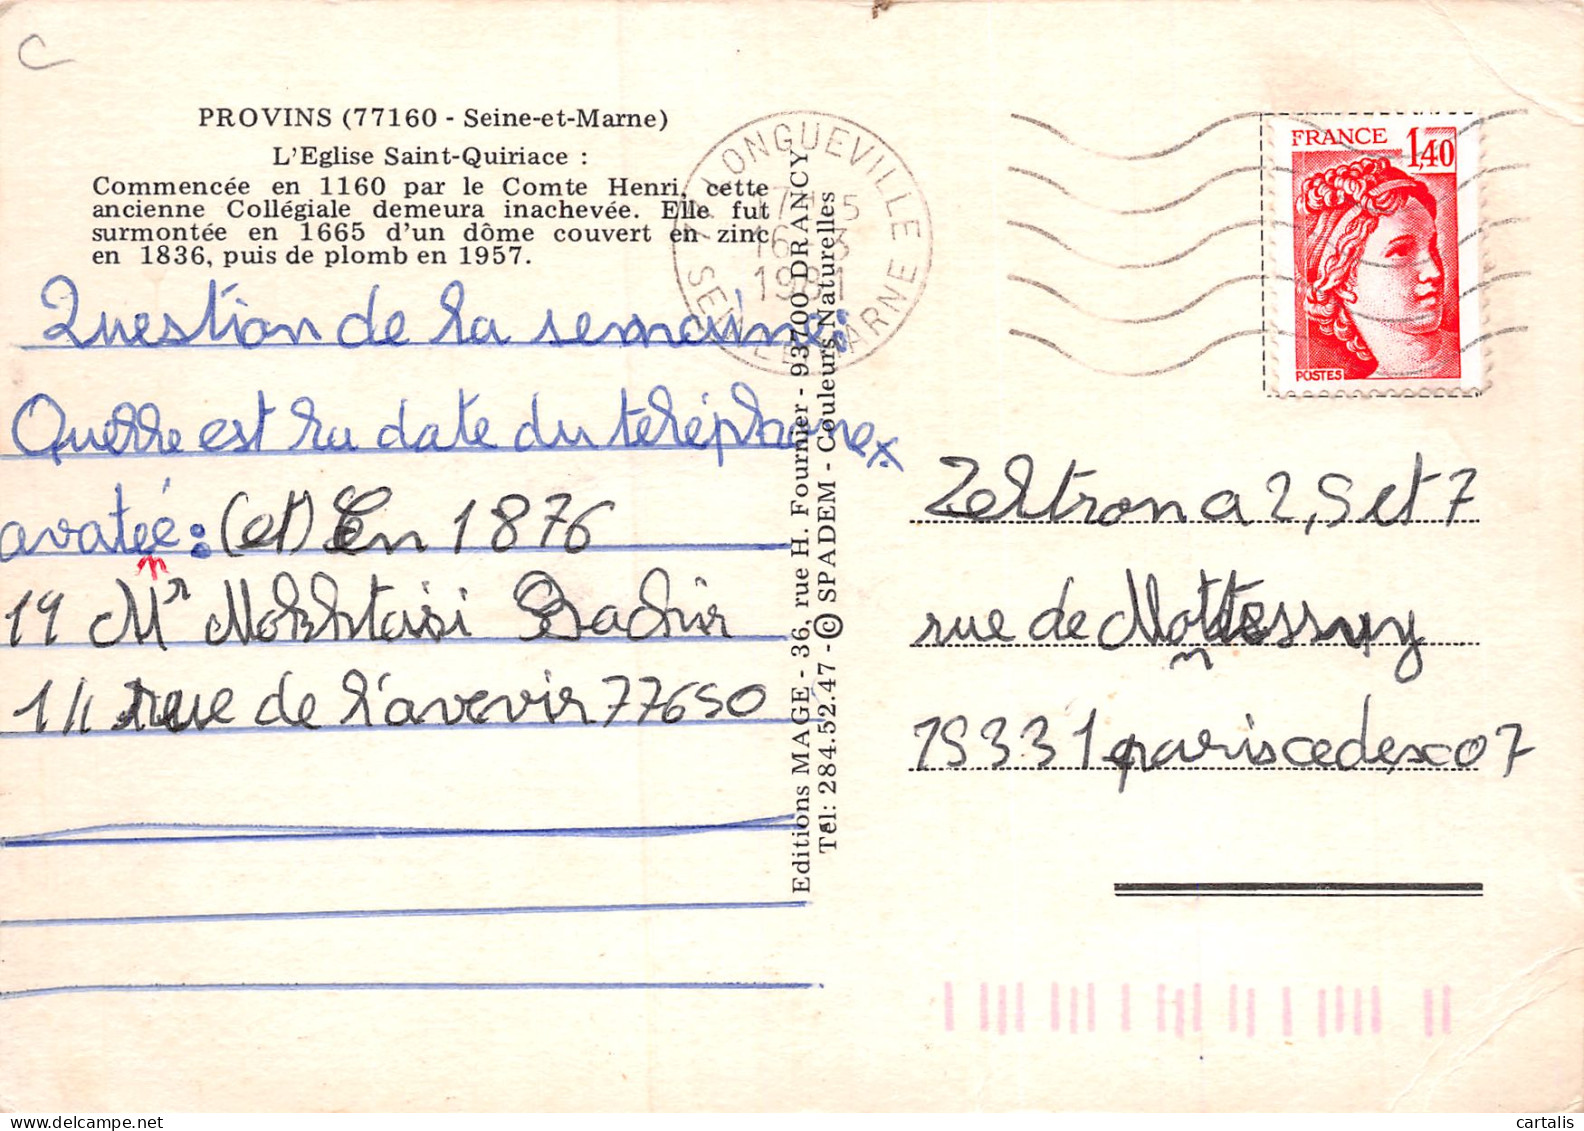 C
PROVINS (77160 - Seine-et-Marne)
L'Eglise Saint-Quiriace :
Commencée en 1160 par le Comte Henri, cette
ancienne Collégiale demeura inachevée. Elle fut
surmontée en 1665 d'un dôme couvert en zinc
en 1836, puis de plomb en 1957.
LONGUEVILLE
16-3
1981
SEINE ET MARNE
FRANCE
1,40
POSTES
Question de la semaine:
Quelle est la date du téléphone x
avatée: (et) En 1876
19 Mr Mokhtari Bachir
1 rue de l'avenir 77650
Editions MAGE - 36, rue H. Fournier - 93700 DRANCY
Tél: 284.52.47 - © SPADEM - Couleurs Naturelles
Zeltron a 2, 5 et 7
rue de Mottessuy
75331 paris cedex 07
cartalis